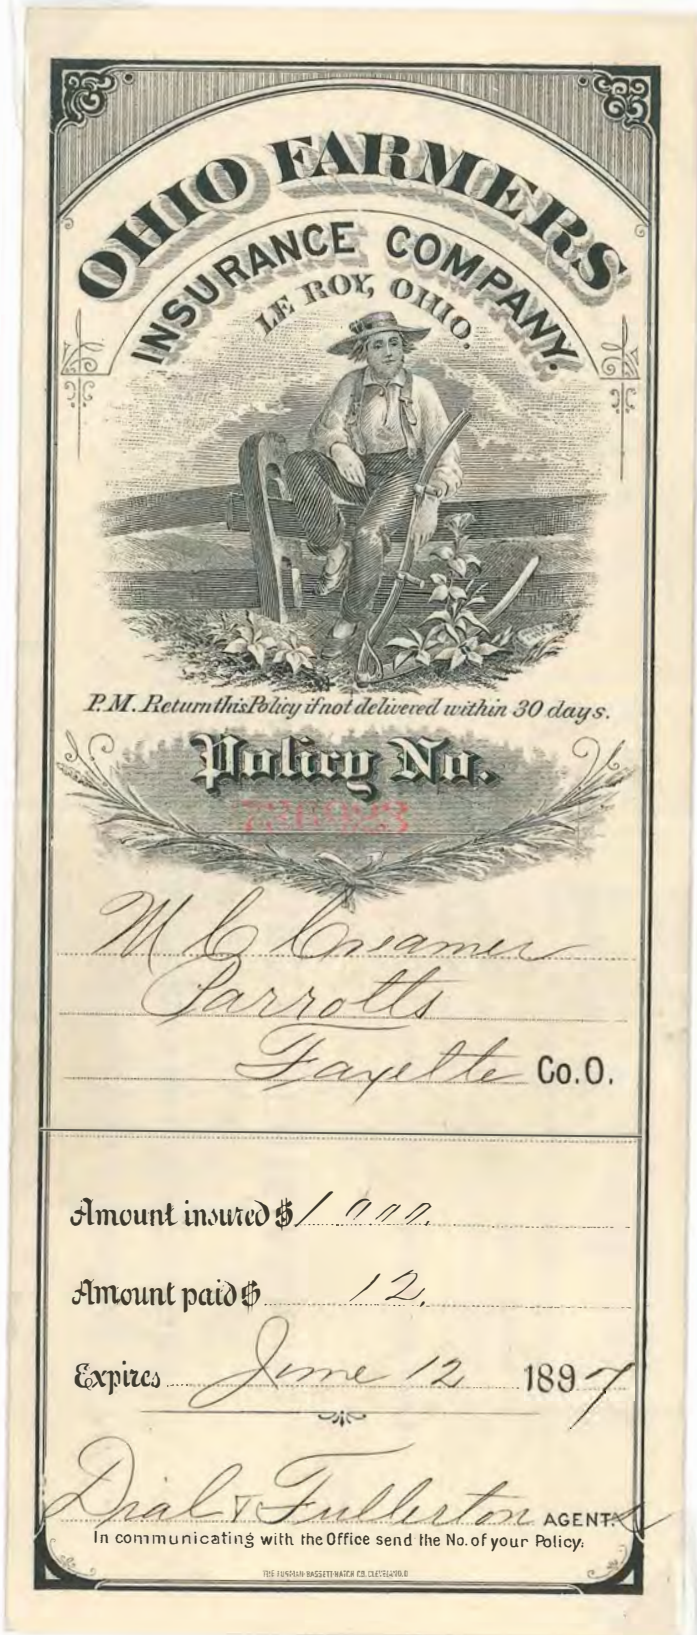 OHIO FARMERS
INSURANCE COMPANY.
LE ROY, OHIO.
P.M. Return this Policy if not delivered within 30 days.
Policy No.
736923
M C Creamer
Parrotts
Fayette Co. O.
Amount insured $ 1000.
Amount paid $ 12.
Expires June 12 1897
Dial & Fullerton AGENTs
In communicating with the Office send the No. of your Policy.
CLEVELAND, O